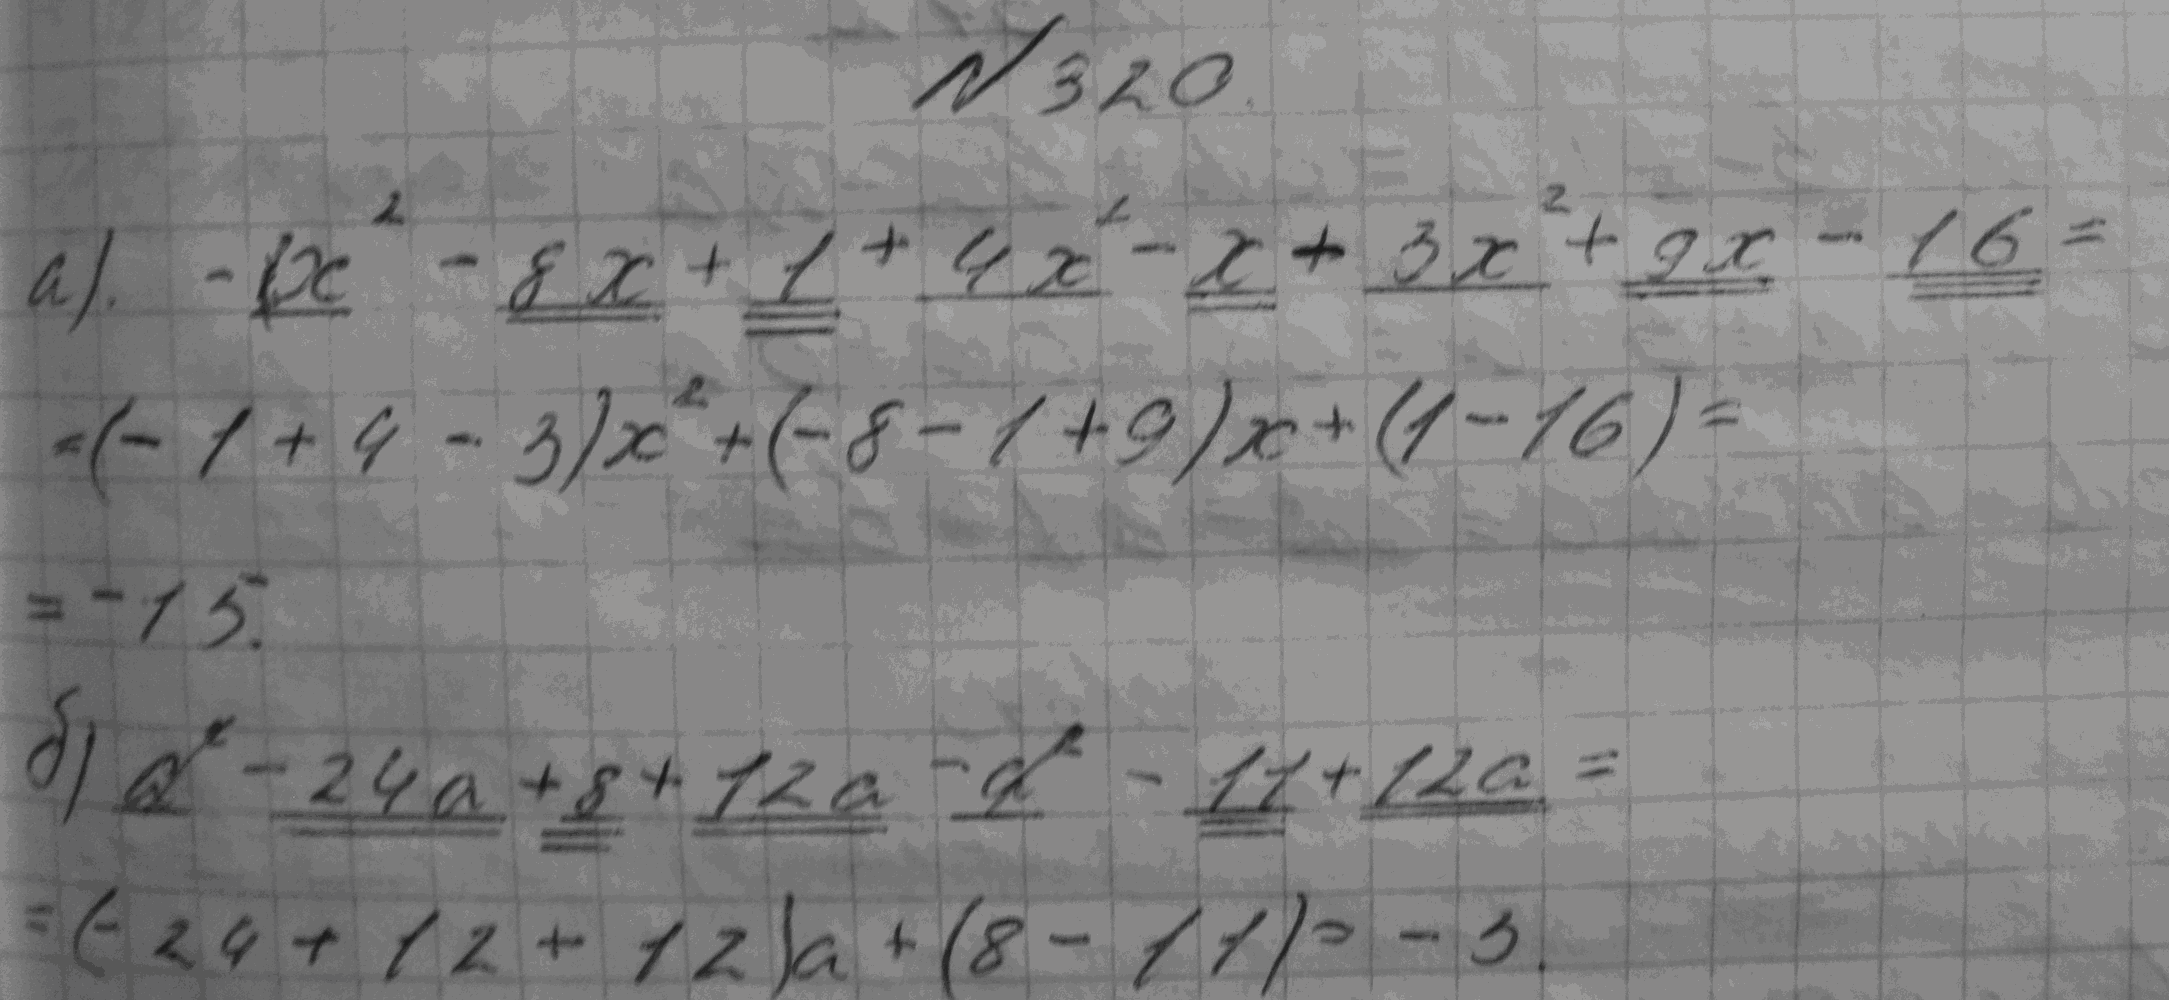 N 320.
а). -1x² - 8x + 1 + 4x² - x + 3x² + 9x - 16 =
=(-1+4-3)x²+(-8-1+9)x+(1-16)=
= -15.
б) a² - 24a + 8 + 12a - a² - 11 + 12a =
=(-24+12+12)a+(8-11)= -3.